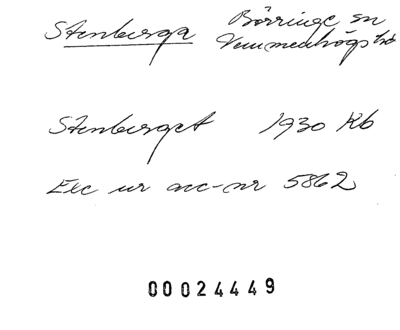 Stenberga Börringe sn
Vemmenhögs hd
Stenberget 1930 Kb
Exc ur acc-nr 5862
00024449